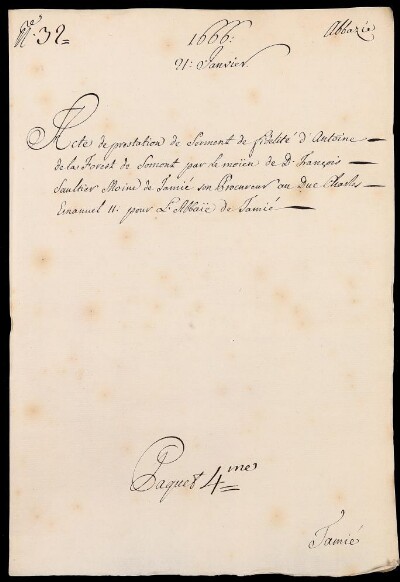 N.º 32 =
Abbazie
1666.
21. Janvier.
Acte de prestation de Serment de fidelité d'Antoine —
de la Forest de Somont par le moïen de D. François —
Saultier Moine de Tamié son Procureur au Duc Charles —
Emanuel II. pour L'Abbaïe de Tamié —
Paquet 4.me
Tamié